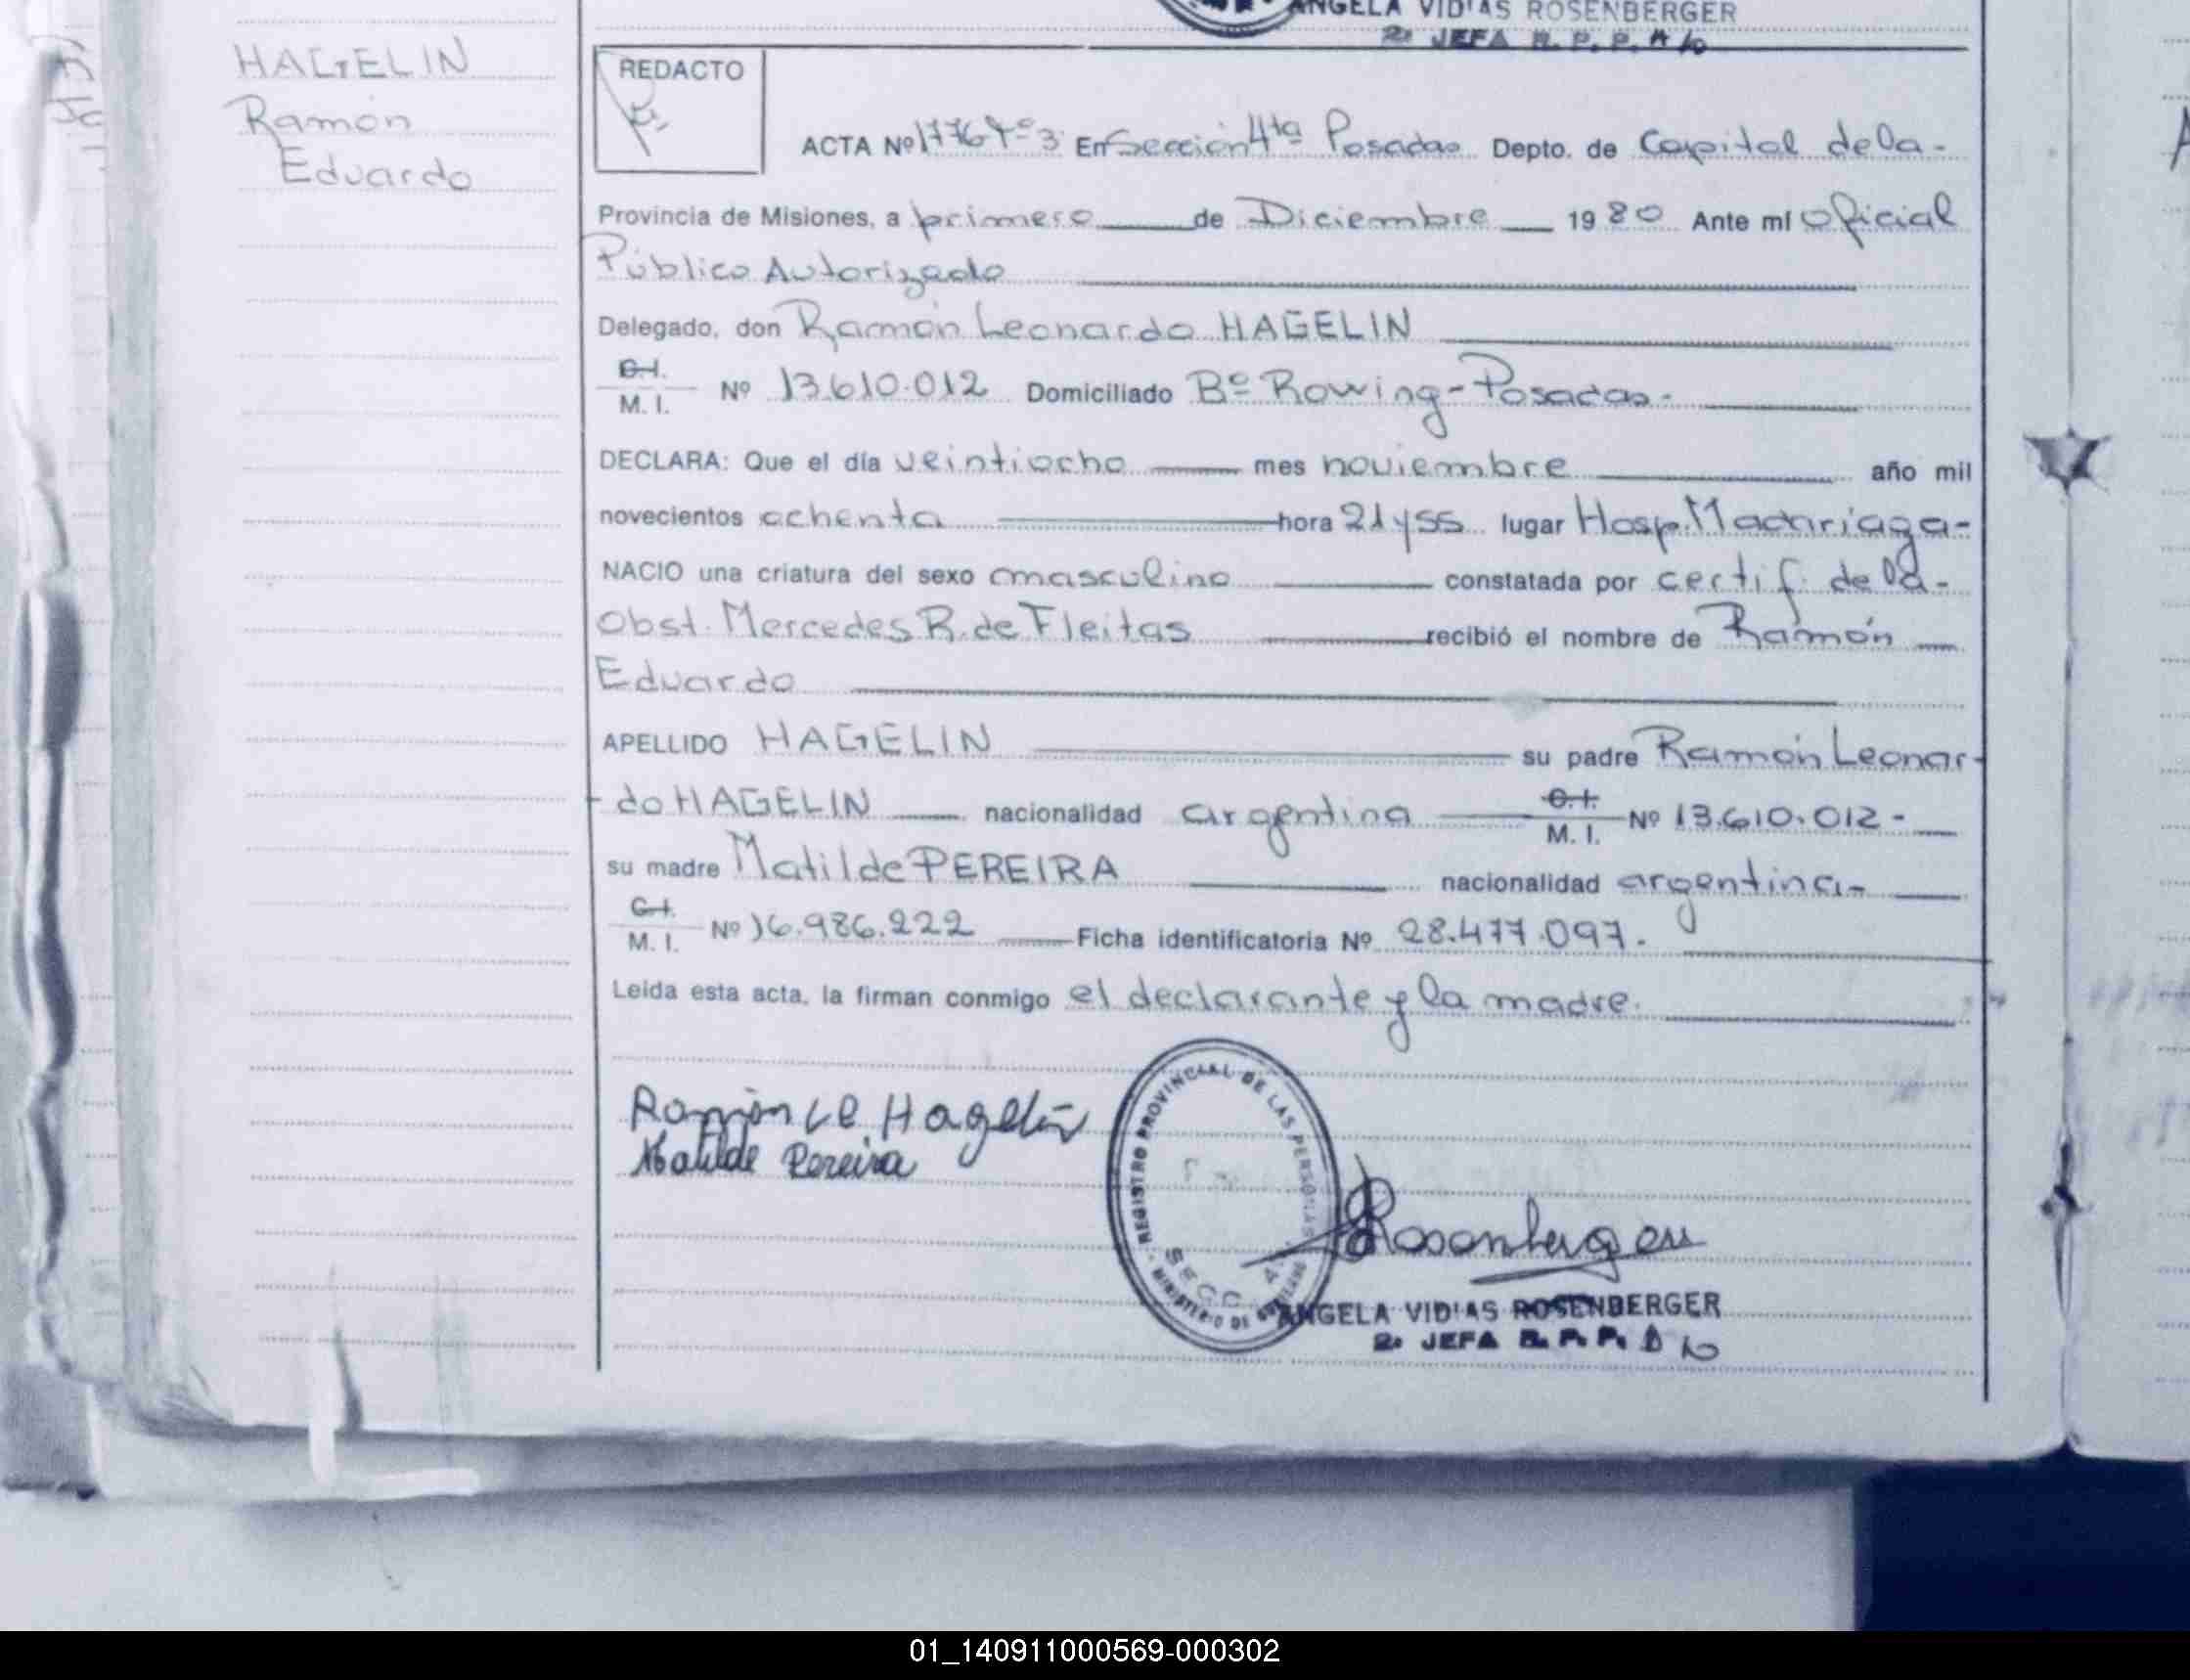 ANGELA VIDIAS ROSENBERGER
2. JEFA R. P. P.
HAGELIN
Ramón
Eduardo
REDACTO
ACTA Nº 1776 Tº 3 En Sección 4ta Posadas Depto. de Capital de la -
Provincia de Misiones, a primero de Diciembre 1980 Ante mí Oficial
Público Autorizado
Delegado, don Ramón Leonardo HAGELIN
C.I. M. I. Nº 13.610.012 Domiciliado Bº Rowing - Posadas -
DECLARA: Que el día veintiocho mes noviembre año mil
novecientos ochenta hora 21 y 55 lugar Hosp. Madariaga -
NACIO una criatura del sexo masculino constatada por certif. de la -
Obst. Mercedes R. de Fleitas recibió el nombre de Ramón
Eduardo
APELLIDO HAGELIN su padre Ramón Leonar-
do HAGELIN nacionalidad argentina C.I. M. I. Nº 13.610.012 -
su madre Matilde PEREIRA nacionalidad argentina -
C.I. M. I. Nº 16.986.222 Ficha identificatoria Nº 28.477.097.
Leída esta acta, la firman conmigo el declarante y la madre.
Ramón Le Hagelin
Matilde Pereira
REGISTRO PROVINCIAL DE LAS PERSONAS
SECC. 4
MINISTERIO DE GOBIERNO
Rosenberger
ANGELA VIDIAS ROSENBERGER
2. JEFA R. P. P.
01_140911000569-000302